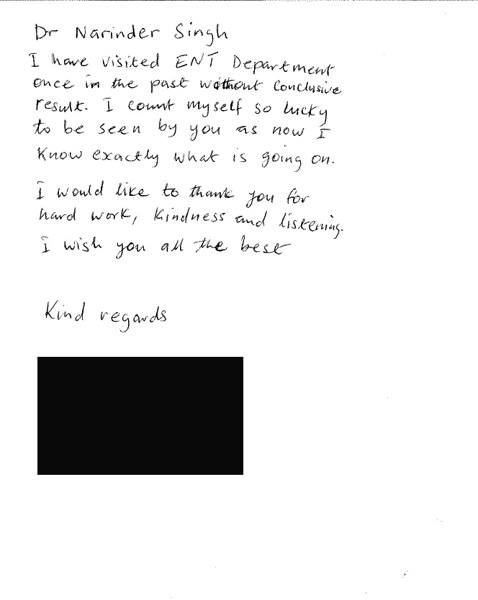 Dr Narinder Singh
I have visited ENT Department
once in the past without conclusive
result. I count myself so lucky
to be seen by you as now I
know exactly what is going on.
I would like to thank you for
hard work, kindness and listening.
I wish you all the best
Kind regards